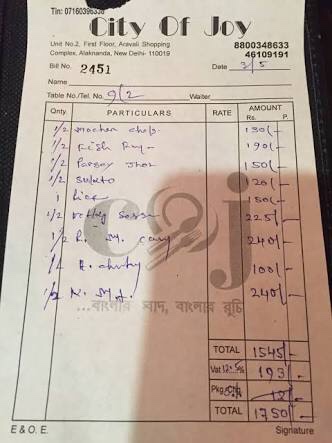 Tin: 07160396338
City Of Joy
Unit No.2, First Floor, Aravali Shopping
Complex, Alaknanda, New Delhi- 110019
8800348633
46109191
Bill No. 2451 Date 3/5
Name
Table No./Tel. No. 9/2 Waiter
Qnty. PARTICULARS RATE AMOUNT
Rs. P.
1/2 130/-
1/2 Fish 190/-
1/2 150/-
1/2 Sukto 120/-
1 Rice 150/-
1/2 225/-
1/2 240/-
1/2 100/-
1/2 240/-
coj
...বাংলার স্বাদ, বাংলার রুচি
TOTAL 1545/-
Vat 12.5% 193/-
Pkg. Chg. 12/-
TOTAL 1750/-
E & O. E. Signature